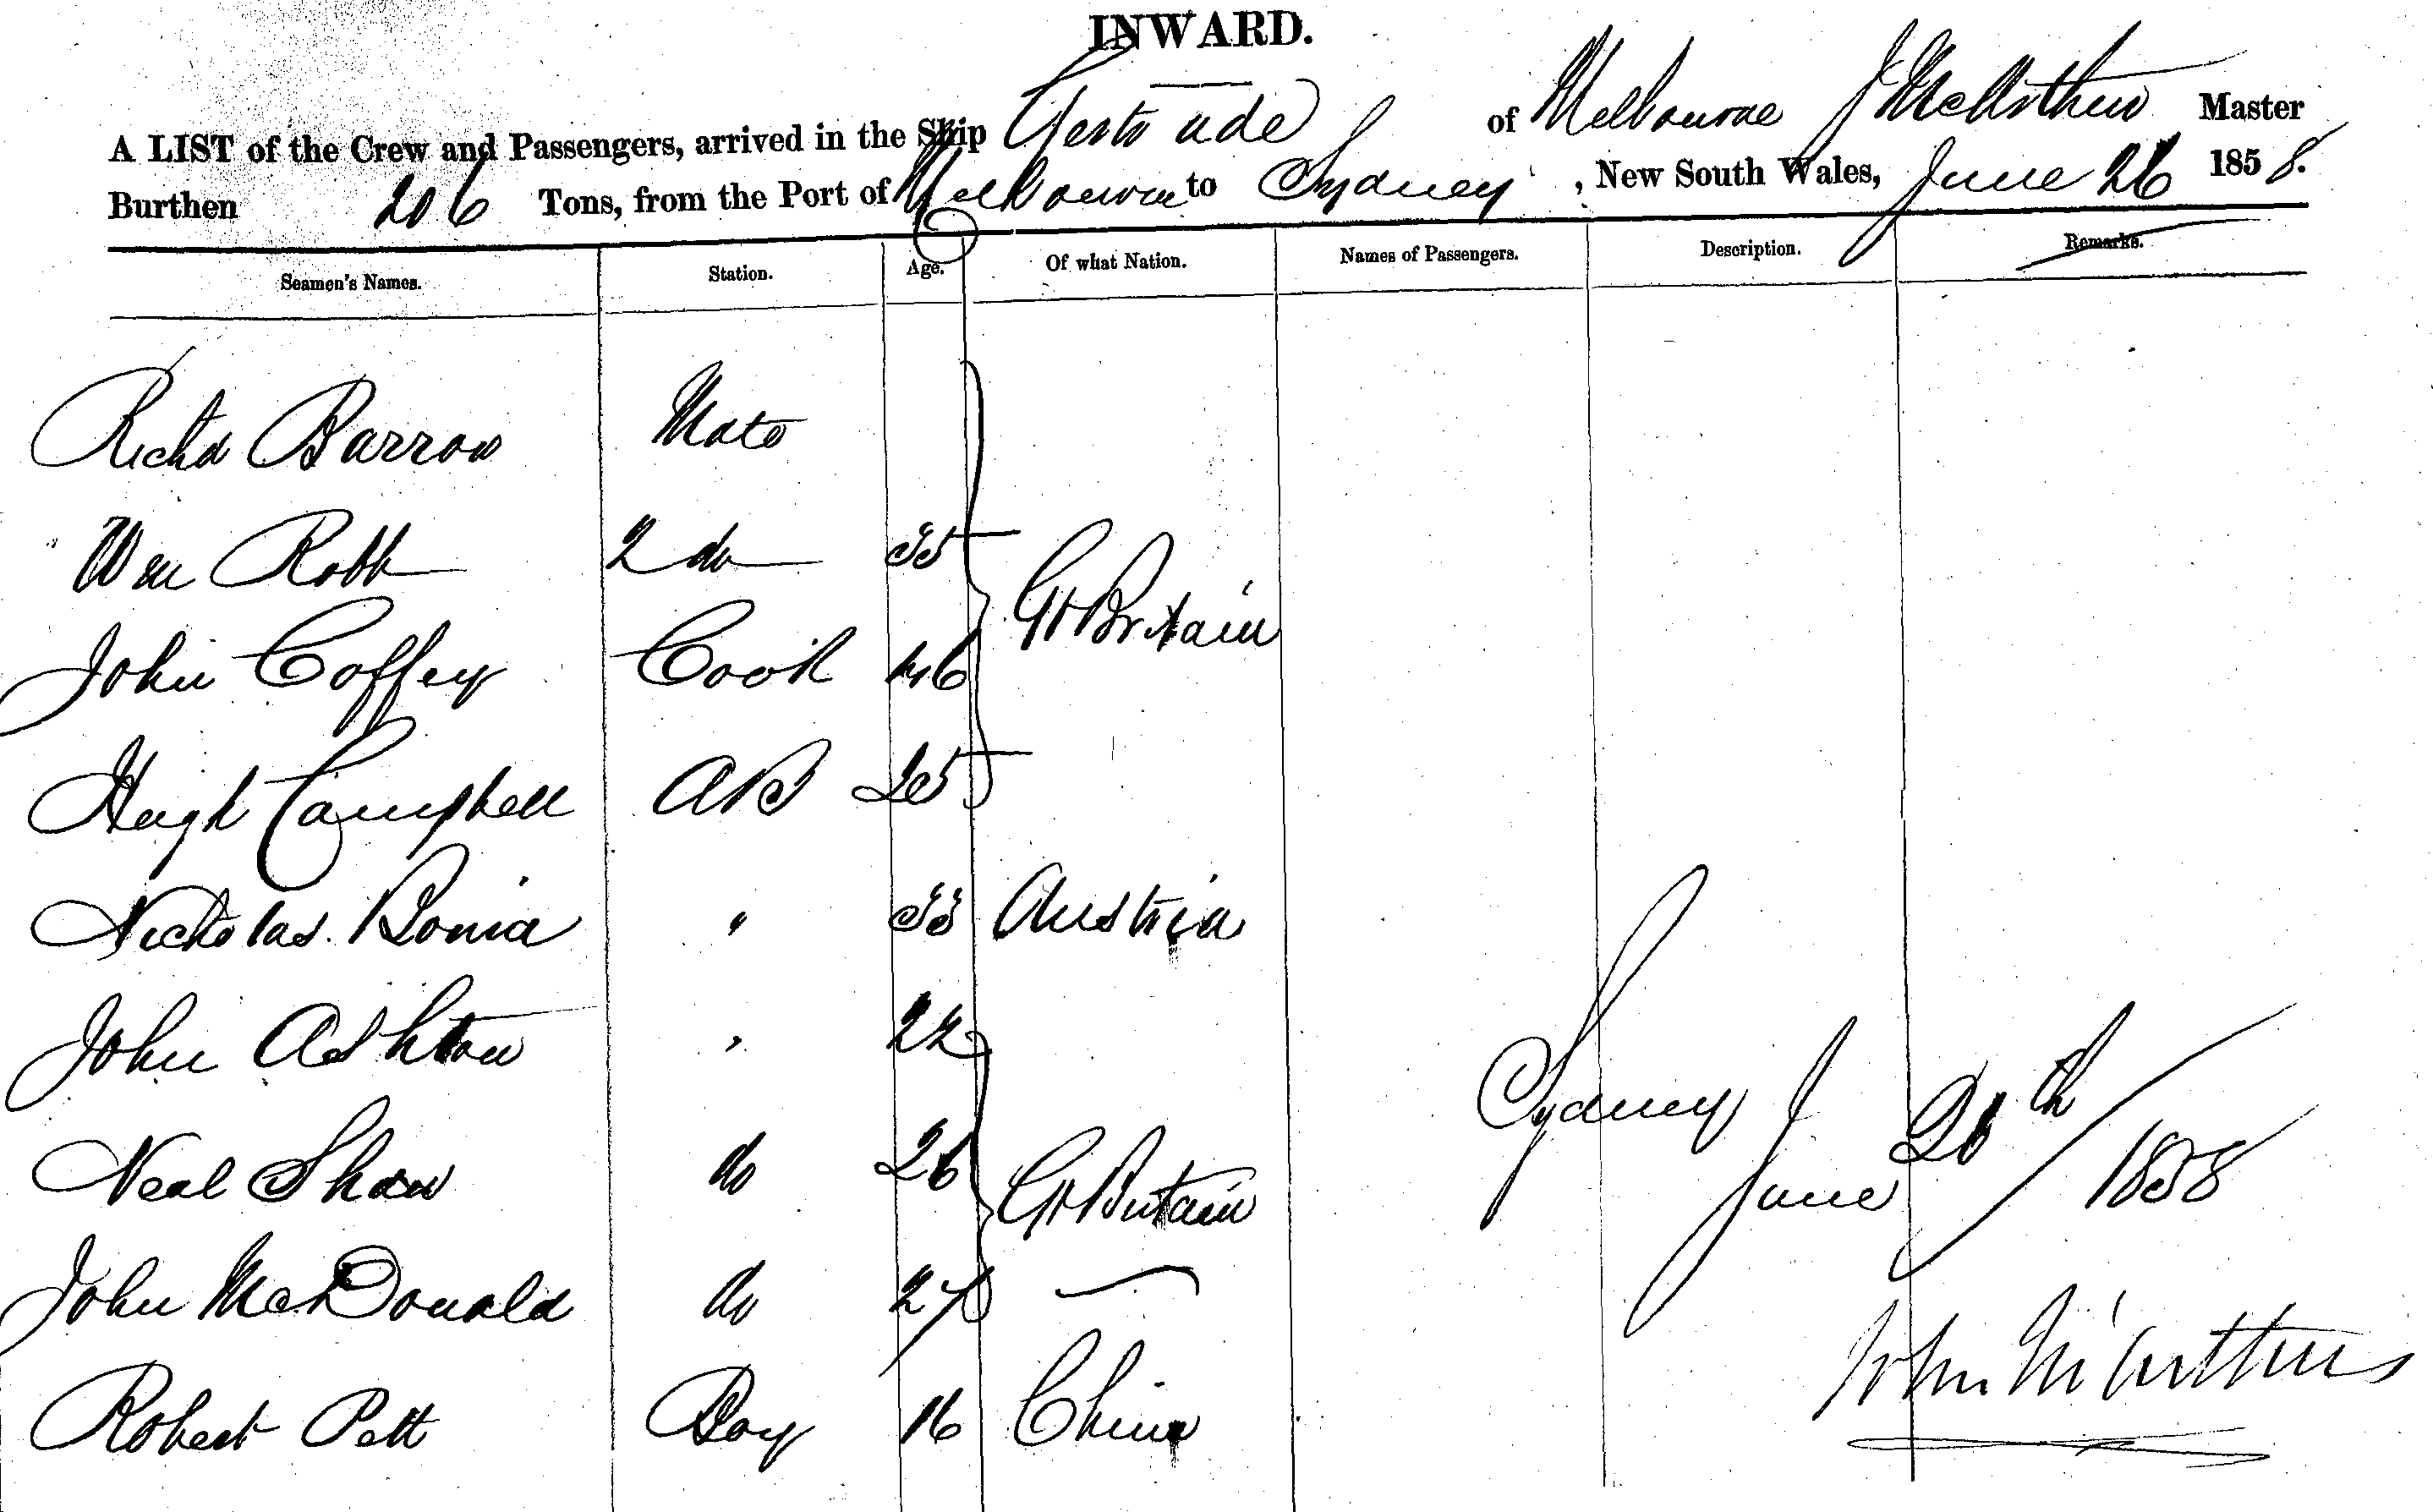 INWARD.
A LIST of the Crew and Passengers, arrived in the Ship Gertrude of Melbourne J McArthur Master
Burthen 206 Tons, from the Port of Melbourne to Sydney, New South Wales, June 26 1858.
Seamen's Names. Station. Age. Of what Nation. Names of Passengers. Description. Remarks.
Richd Barrow Mate
Wm Robb 2 do 35
Gt Britain
John Coffey Cook 46
Hugh Campbell AB 25
Nicholas Bonia " 33 Austria
John Ashton " 22
Sydney June 26th / 1858
Neal Shaw do 26 Gt Britain
John McDonald do 27
John McArthur
Robert Pett Boy 16 China